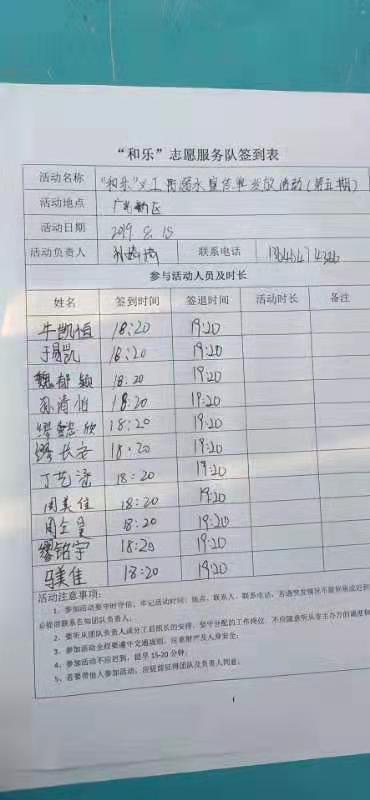 “和乐”志愿服务队签到表
活动名称 “和乐”义工防溺水宣传单发放活动(第五期)
活动地点 广电新区
活动日期 2019. 8. 15
活动负责人 联系电话
参与活动人员及时长
姓名 签到时间 签退时间 活动时长 备注
牛凯恒 18:20 19:20
于易凯 18:20 19:20
魏郁颖 18:20 19:20
孙涛怡 18:20 19:20
18:20 19:20
缪长安 18:20 19:20
丁艺涵 18:20 19:20
周美佳 18:20 19:20
周全量 18:20 19:20
缪铭宇 18:20 19:20
马美佳 18:20 19:20
活动注意事项:
1、参加活动要守时守信,牢记活动时间、地点、联系人、联系电话,若遇突发情况不能参加或迟到
必提前联系告知团队负责人;
2、要听从团队负责人或分工后组长的安排,坚守分配的工作岗位,不应随意听从非主办方的调度和
3、参加活动全程要遵守交通规则,注意财产及人身安全;
4、参加活动不应迟到,提早 15-20 分钟;
5、若要带他人参加活动,应提前征得团队负责人同意。
1